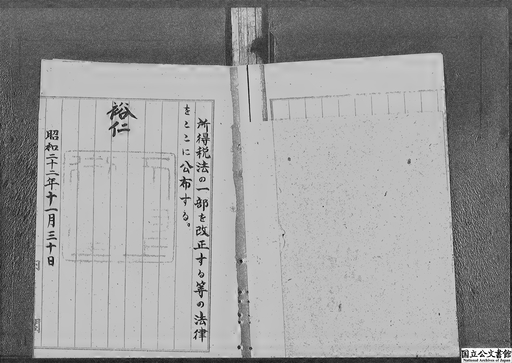 所得税法の一部を改正する等の法律
をここに公布する。
裕仁
昭和二十二年十一月三十日
内閣
国立公文書館
National Archives of Japan